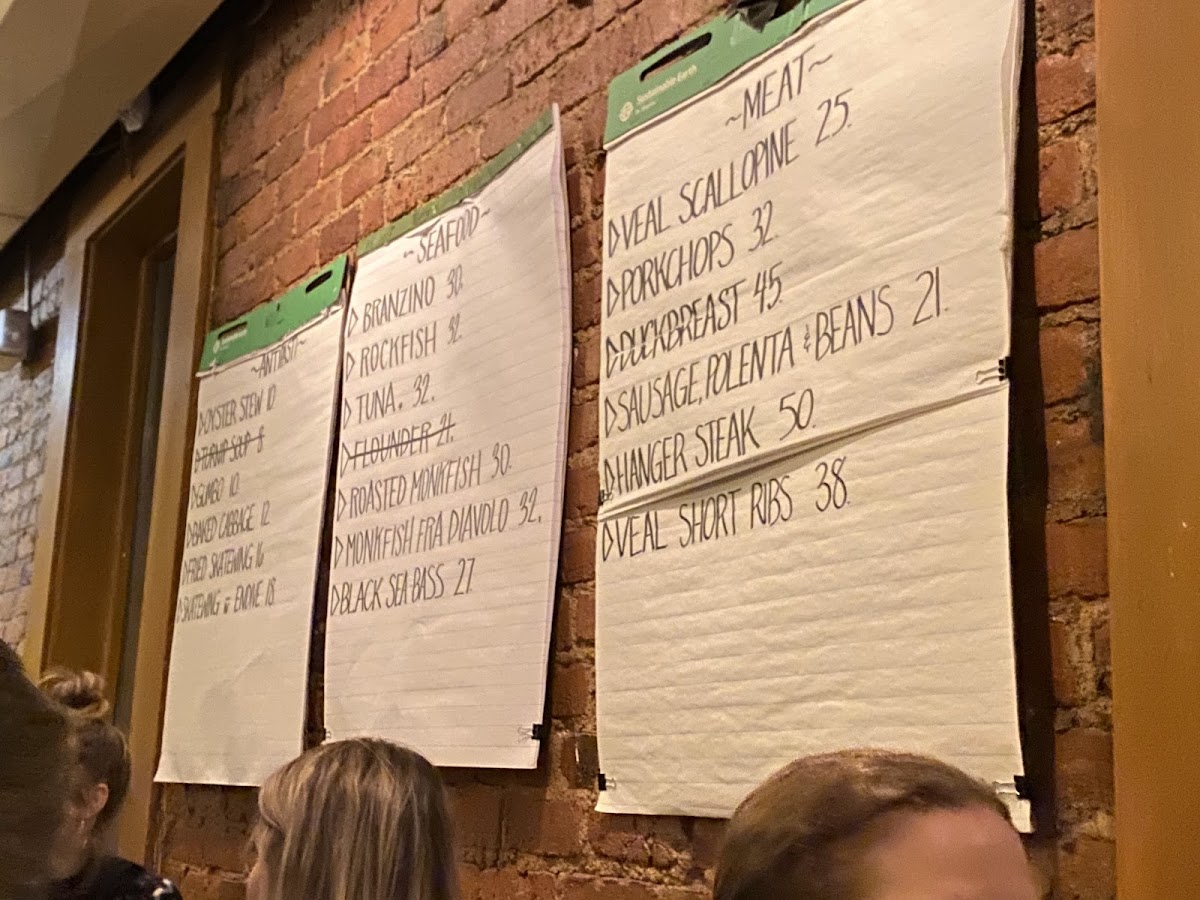 ~ANTIPASTI~
▷OYSTER STEW 10
▷TURNIP SOUP 8
▷GUMBO 10.
▷BAKED CABBAGE 12
▷FRIED SKATEWING 16
▷SKATEWING & ENDIVE 18
~SEAFOOD~
▷BRANZINO 30.
▷ROCKFISH 32.
▷TUNA. 32.
▷FLOUNDER 21.
▷ROASTED MONKFISH 30.
▷MONKFISH FRA DIAVOLO 32.
▷BLACK SEA BASS 27.
Sustainable Earth
~MEAT~
▷VEAL SCALLOPINE 25.
▷PORKCHOPS 32.
▷DUCKBREAST 45.
▷SAUSAGE, POLENTA & BEANS 21.
▷HANGER STEAK 50.
▷VEAL SHORT RIBS 38.